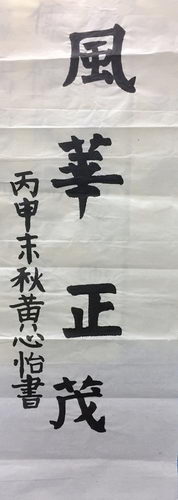 風華正茂
丙申末秋黄心怡書